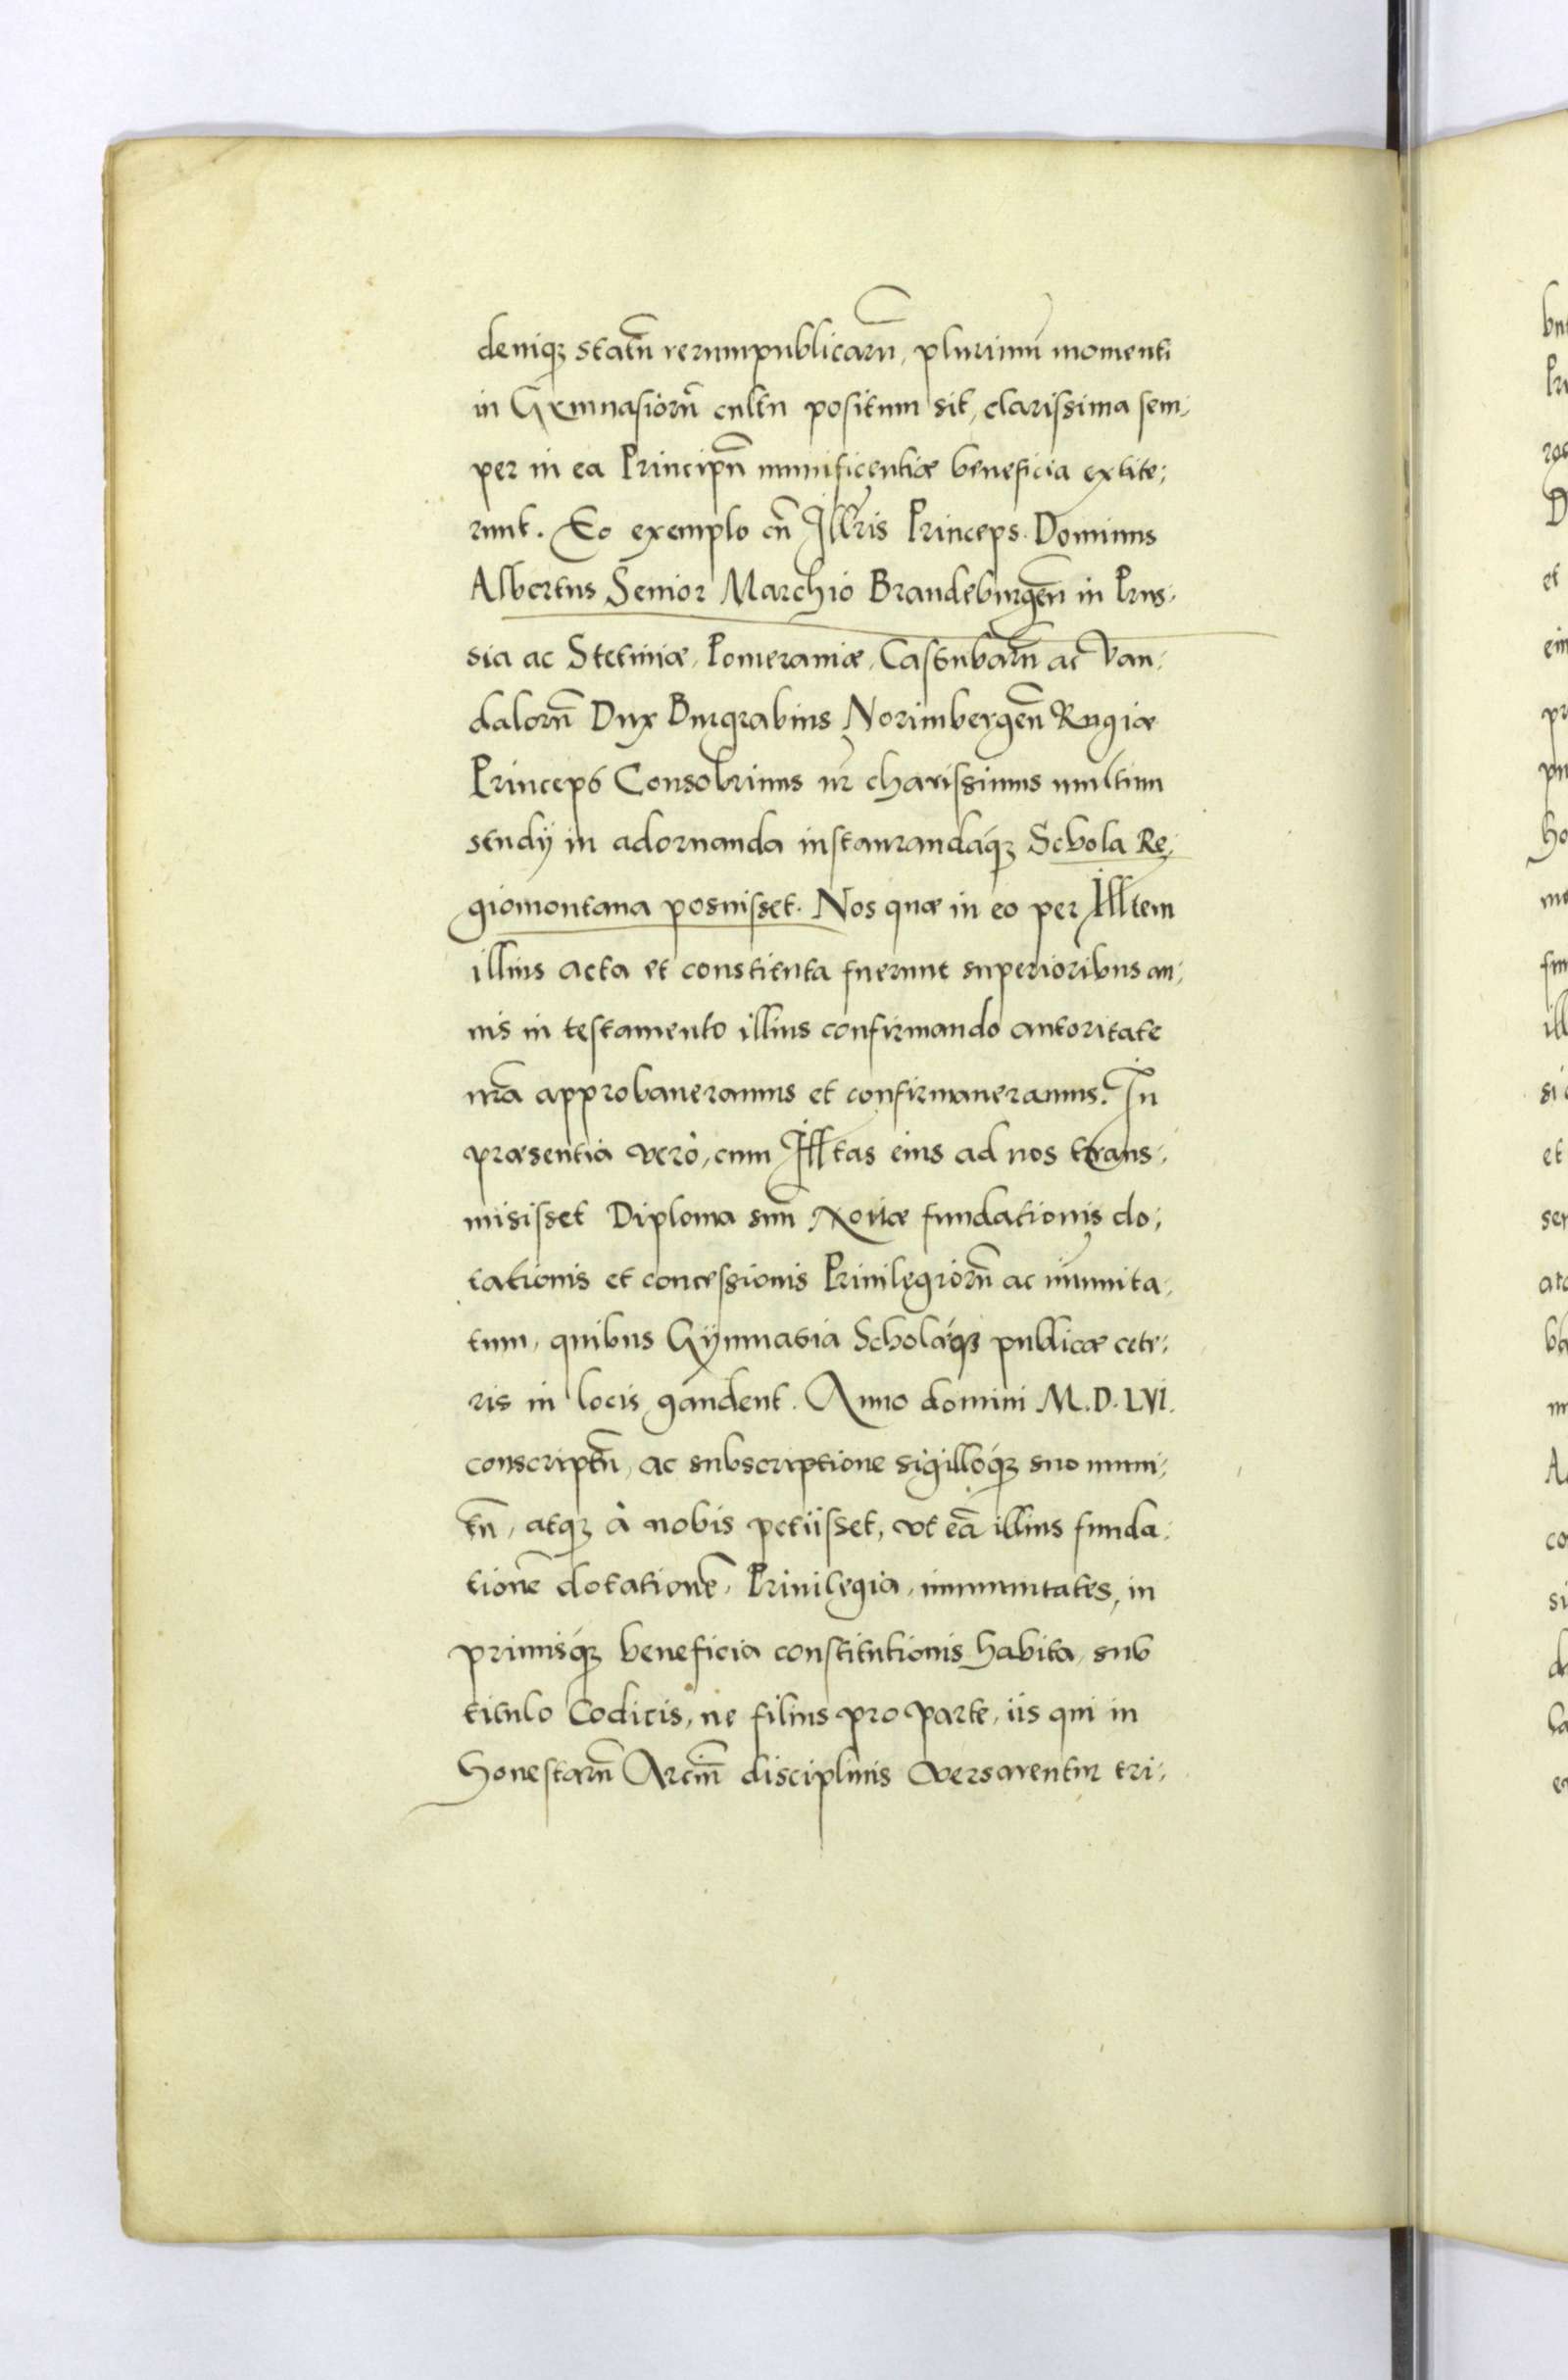 deniq; statũ rerumpublicarũ, plurimũ momenti
in Gymnasiorũ cultu positum sit, clarissima sem,
per in ea Principũ munificentiæ beneficia extite,
runt. Eo exemplo cũ Illr̃is Princeps. Dominus
Albertus Senior Marchio Brandeburgen̄ in Prus,
sia ac Stetiniæ, Pomeraniæ, Cassubarũ ac Van,
dalorũ Dux Burgrabius Norimbergen̄ Rugiæ
Princeps Consobrinus nr̃ charissimus multum
studij in adornanda instaurandaq́; Schola Re,
giomontana posuisset. Nos quæ in eo per Illtem
illius acta et constituta fuerunt superioribus an,
nis in testamento illius confirmando autoritate
nr̃a approbaueramus et confirmaueramus. In
præsentia verò, cum Illtas eius ad nos trans,
misisset Diploma suũ Nouæ fundationis do,
tationis et concessionis Priuilegiorũ ac im̃unita,
tum, quibus Gÿmnasia Scholæq́; publicæ cete,
ris in locis gaudent. Anno domini M.D.LVI.
conscriptũ, ac subscriptione sigilloq́; suo muni,
tũ, atq; à nobis petijsset, vt eã illius funda,
tionẽ dotationẽ, Priuilegia, immunitates, in
primisq́; beneficia constitutionis habita, sub
titulo Codicis, ne filius pro parte, iis qui in
honestarũ Artiũ disciplinis versarentur tri,